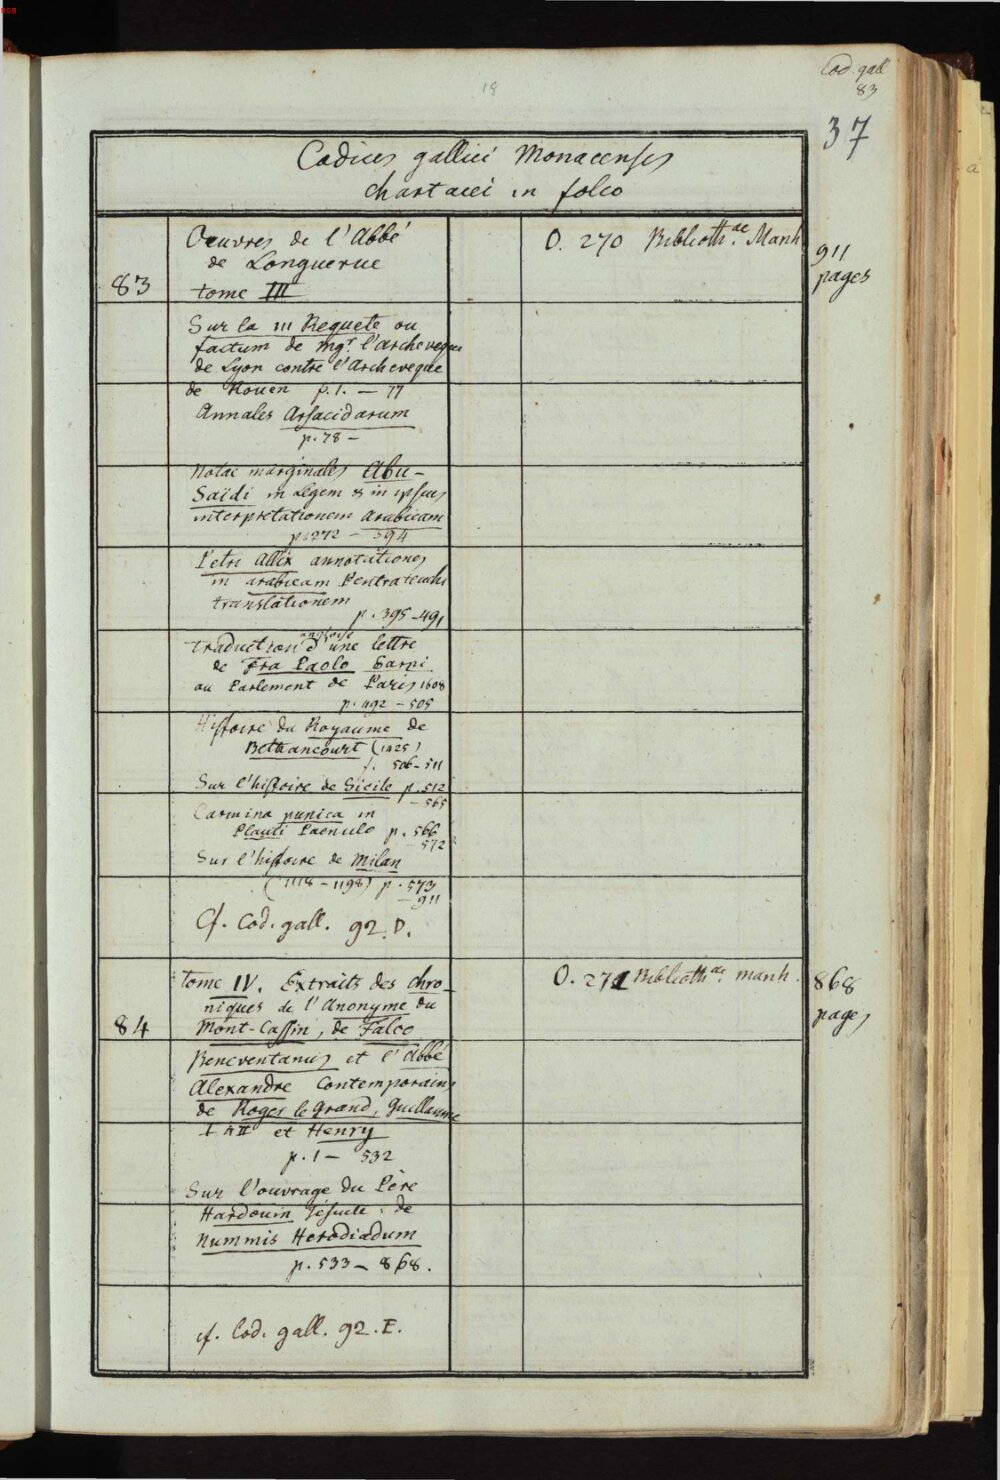 Cod. gall
83
37
18
Codices gallici Monacenses
chartacei in folio
Oeuvres de l'Abbé
de Longuerue
83
tome III
O. 270 Biblioth.ae Manh
911
pages
Sur la III Requete ou
factum de mgr l'archeveque
de Lyon contre l'Archeveque
de Rouen p. 1. — 77
Annales Arsacidarum
p. 78 —
Notae marginales Abu-
Saïdi in Legem & in ipsius
interpretationem arabicam
p. 272 — 394
Petri Allix annotationes
in arabicam Pentateuchi
translationem
p. 395 - 491
traduction angloise d'une lettre
de Fra Paolo Sarpi
au Parlement de Paris 1608
p. 492 - 505
Histoire du Royaume de
Bethancourt (1425)
f. 506 - 511
Sur l'histoire de Sicile p. 512
- 565
Carmina punica in
Plauti Paenulo p. 566
- 572
Sur l'histoire de Milan
(1118 - 1198) p. 573
- 911
Cf. Cod. gall. 92. D.
tome IV. Extraits des chro-
niques de l'Anonyme du
84
Mont-Cassin, de Falco
O. 271 Biblioth.ae manh.
868
pages
Beneventanus et l'Abbé
Alexandre Contemporains
de Roger le Grand, Guillaume
I & II et Henry
p. 1 — 532
Sur l'ouvrage du Père
Hardouin Jésuite: de
Nummis Herodiadum
p. 533 — 868.
cf. Cod. gall. 92. E.